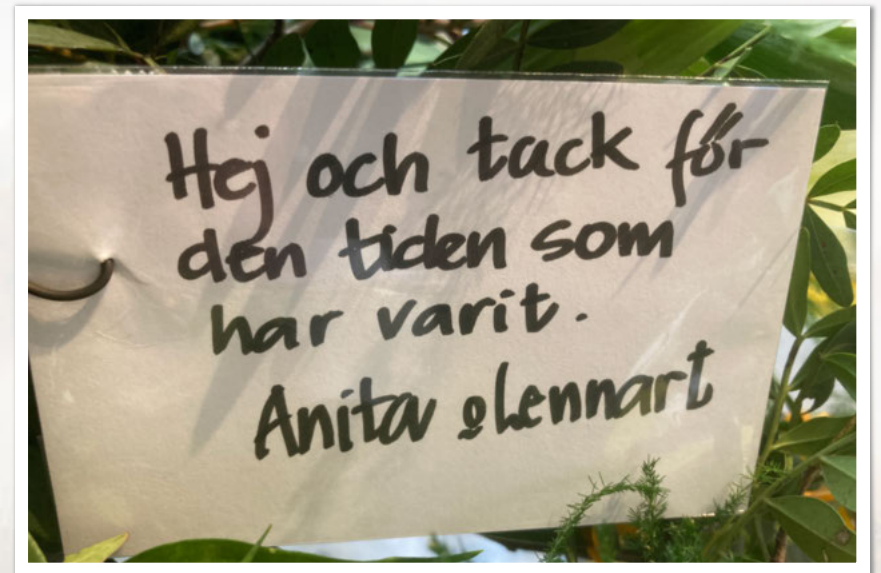 Hej och tack för
den tiden som
har varit.
Anita o Lennart